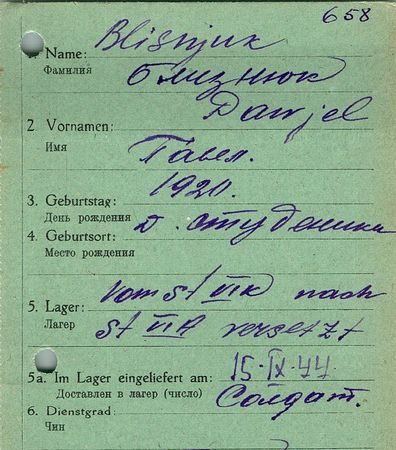 658
Blisnjuk
1. Name:
Фамилия
Близнюк
Dawjel
2. Vornamen:
Имя
3. Geburtstag:
1920.
День рождения
4. Geburtsort:
д. студеники
Место рождения
vom St VI K nach
5. Lager:
Лагер
St VI A versetzt
5a. Im Lager eingeliefert am:
15-IX-44
Доставлен в лагер (число)
6. Dienstgrad:
Солдат.
Чин